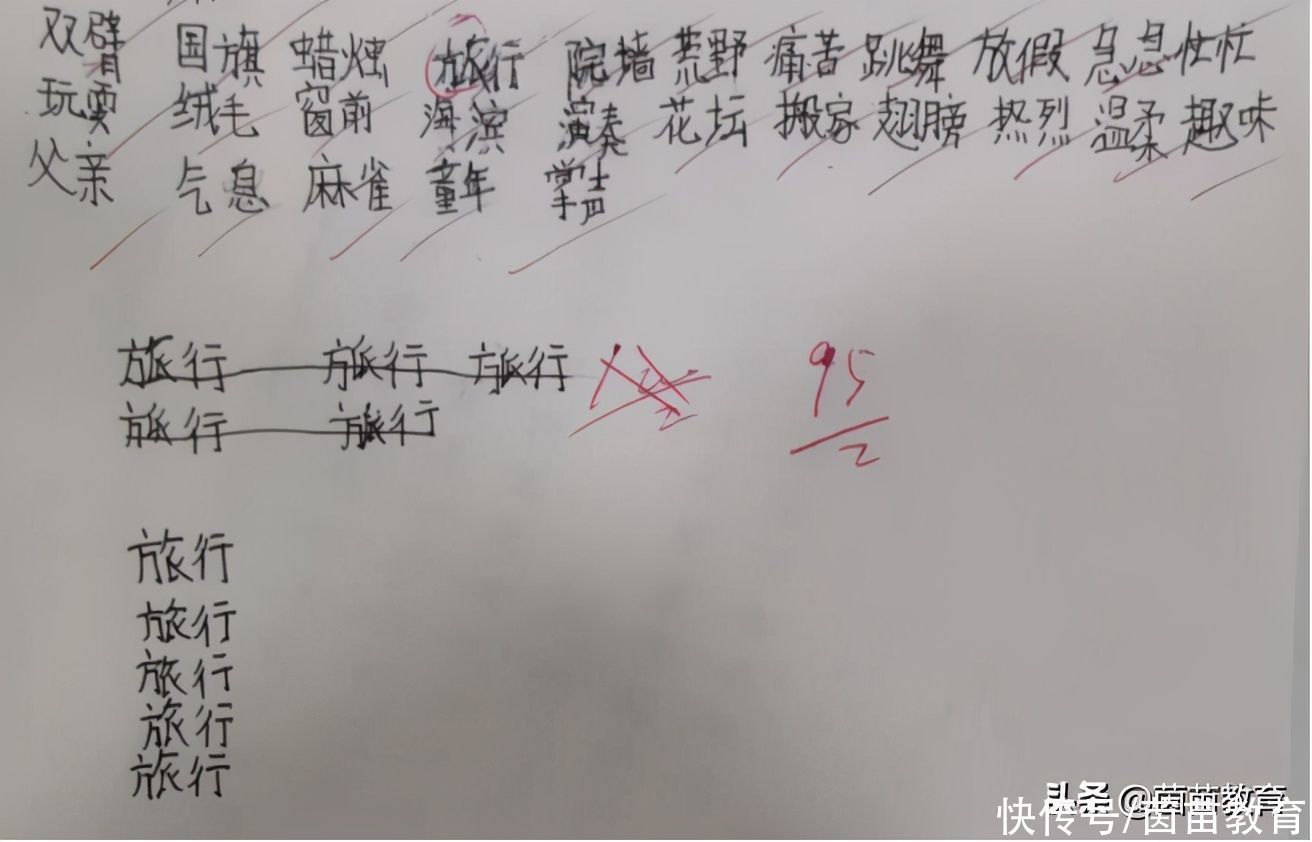 双臂 国旗 蜡烛 旅行 院墙 荒野 痛苦 跳舞 放假 急急忙忙
玩耍 绒毛 窗前 海滨 演奏 花坛 搬家 翅膀 热烈 温柔 趣味
父亲 气息 麻雀 童年 掌声
旅行 旅行 旅行
旅行 旅行
95
2
旅行
旅行
旅行
旅行
旅行
头条 @茵苗教育
快传号/茵苗教育